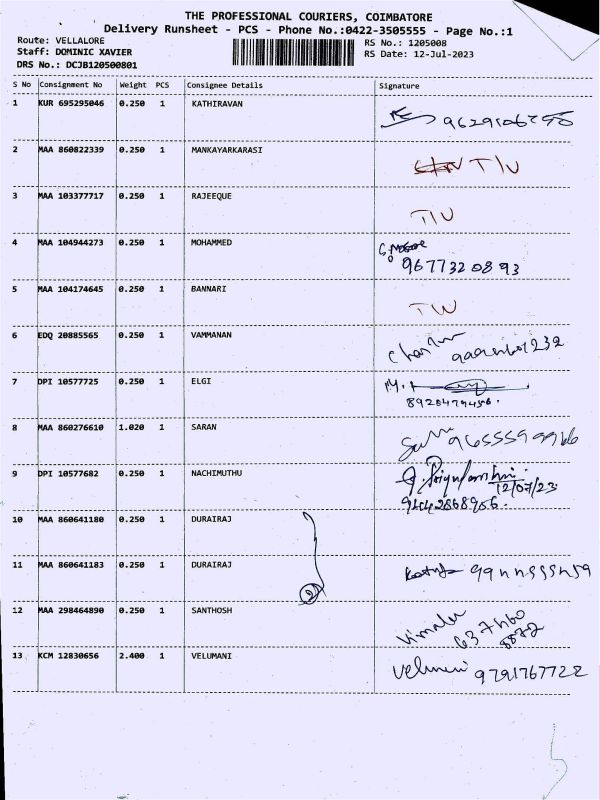 THE PROFESSIONAL COURIERS, COIMBATORE
Delivery Runsheet - PCS - Phone No.:0422-3505555 - Page No.:1
Route: VELLALORE
RS No.: 1205008
Staff: DOMINIC XAVIER
RS Date: 12-Jul-2023
DRS No.: DCJB120500801
S No Consignment No Weight PCS Consignee Details Signature
1 KUR 695295046 0.250 1 KATHIRAVAN
2 MAA 860822339 0.250 1 MANKAYARKARASI T/W
3 MAA 103377717 0.250 1 RAJEEQUE T/W
4 MAA 104944273 0.250 1 MOHAMMED
9677320893
5 MAA 104174645 0.250 1 BANNARI T/W
6 EDQ 20885565 0.250 1 VAMMANAN
7 DPI 10577725 0.250 1 ELGI
8 MAA 860276610 1.020 1 SARAN
9 DPI 10577682 0.250 1 NACHIMUTHU
12/07/23
9442868956.
10 MAA 860641180 0.250 1 DURAIRAJ
11 MAA 860641183 0.250 1 DURAIRAJ
2
12 MAA 298464890 0.250 1 SANTHOSH Vimala
13 KCM 12830656 2.400 1 VELUMANI Velumani 9791767722